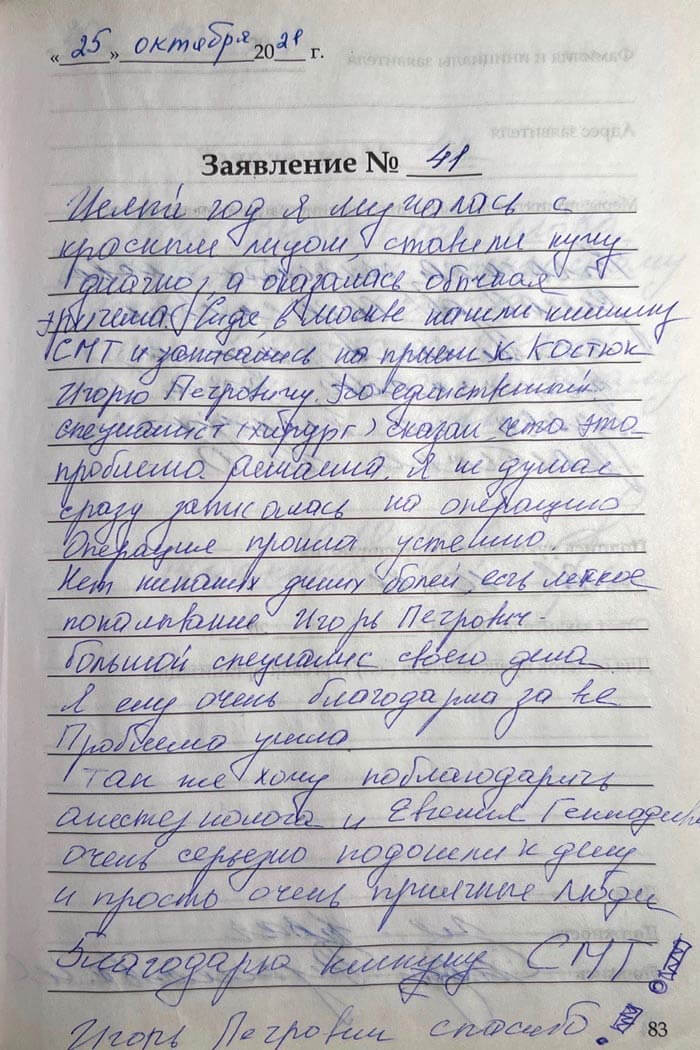 « 25 » октября 2021 г.
Заявление № 41
Целый год я мучалась с
красным лицом, ставили кучу
диагноз, а оказалась обычная
эричема. Сидя, в Москве нашли клинику
СМТ и записались на прием к Костюк
Игорю Петровичу. Это единственный
специалист (хирург) сказал, что эта
проблема решаема. Я не думая
сразу записалась на операцию
Операция прошла успешно.
Нет никаких диких болей, есть легкое
покалывание. Игорь Петрович -
большой специалис своего дела
Я ему очень благодарна за все
Проблема ушла.
Так же хочу поблагодарить
анестезиолога и Евгения Геннадьев
очень серьезно подошли к делу
и просто очень приятные люди
Благодарю клинику СМТ
Игорь Петрович спасибо.
83